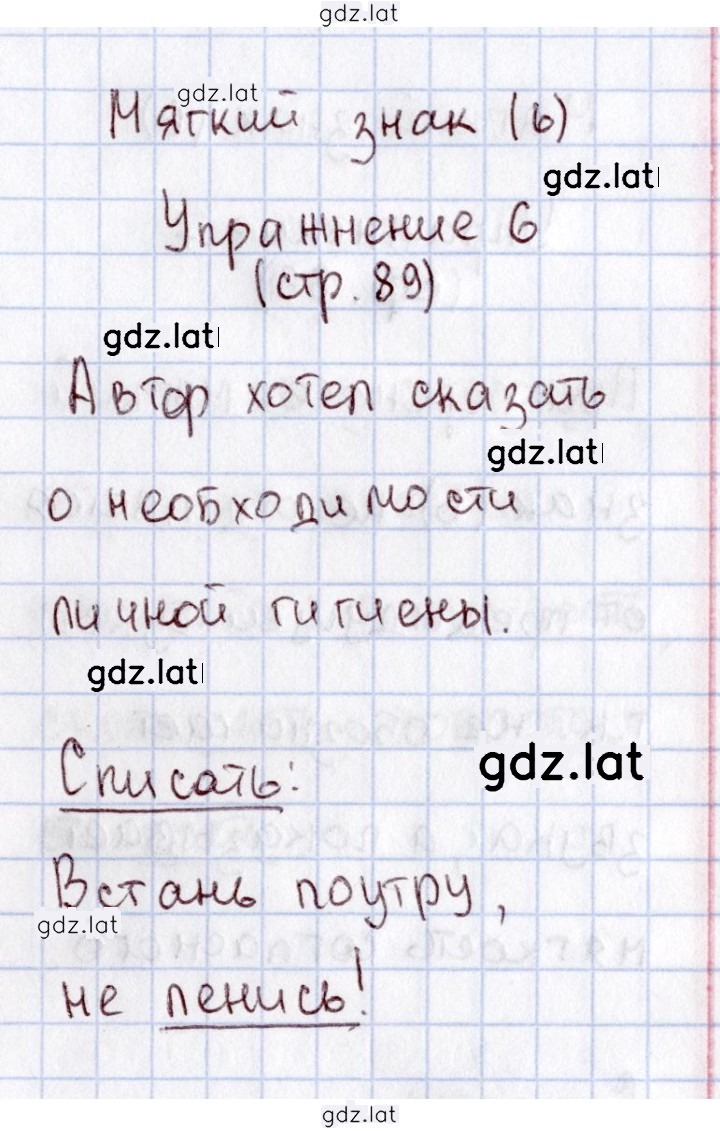 gdz.lat
gdz.lat
Мягкий знак (ь)
gdz.lat
Упражнение 6
(стр. 89)
gdz.lat
Автор хотел сказать
gdz.lat
о необходимости
личной гигиены.
gdz.lat
gdz.lat
Списать:
Встань поутру,
gdz.lat
не ленись!
gdz.lat